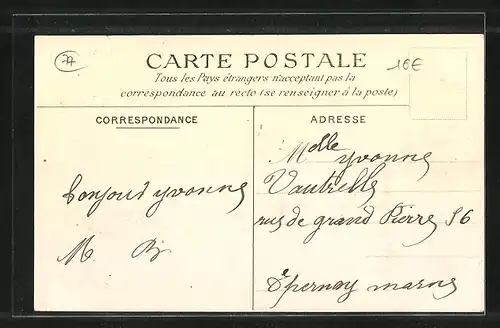 77
CARTE POSTALE
16€
Tous les Pays étrangers n'acceptant pas la
correspondance au recto (se renseigner à la poste)
CORRESPONDANCE
ADRESSE
Melle yvonne
Vautrelle
rus de grand Pierre 56
Épernay marne
bonjour yvonne
M. B.